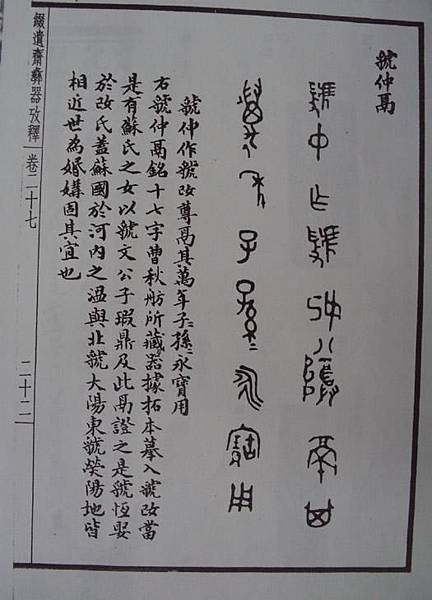 虢仲鬲
虢中乍虢妀尊鬲其
萬年子孫〻永寶用
虢仲作虢妀尊鬲其萬年子〻孫〻永寶用
右虢仲鬲銘十七字曹秋舫所藏器據拓本摹入虢妀當
是有蘇氏之女以虢文公子瑕鼎及此鬲證之是虢恆娶
於妀氏蓋蘇國於河內之溫與北虢大陽東虢熒陽地皆
相近世為婚媾固其宜也
綴遺齋彝器攷釋 卷二十七 二十二